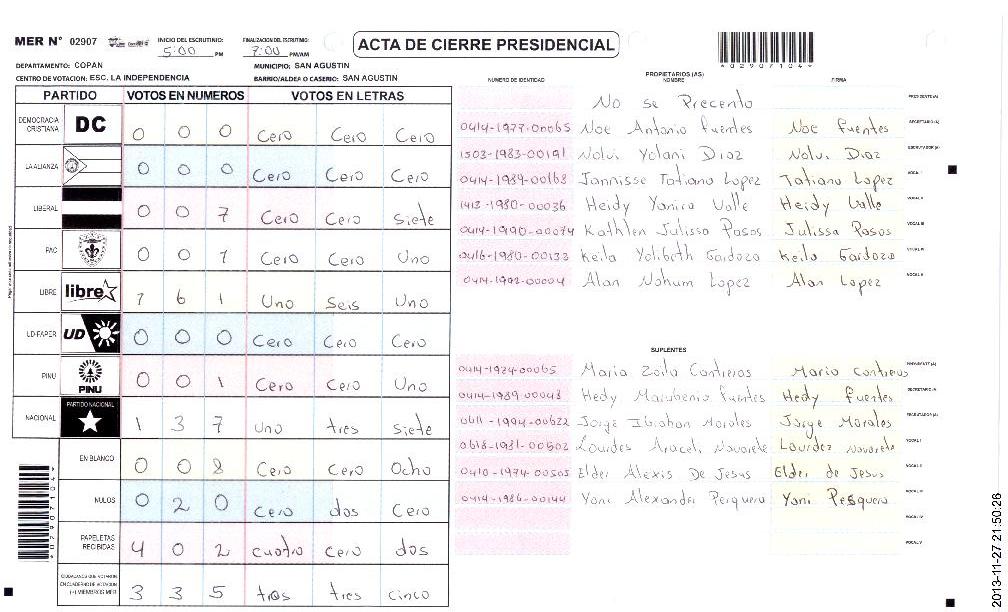 MER N° 02907 INICIO DEL ESCRUTINIO: 5:00 PM FINALIZACION DEL ESCRUTINIO: 7:00 PM/AM ACTA DE CIERRE PRESIDENCIAL
*02907104*
DEPARTAMENTO: COPAN MUNICIPIO: SAN AGUSTIN
CENTRO DE VOTACION: ESC. LA INDEPENDENCIA BARRIO/ALDEA O CASERIO: SAN AGUSTIN
PARTIDO VOTOS EN NUMEROS VOTOS EN LETRAS
DEMOCRACIA CRISTIANA DC 0 0 0 Cero Cero Cero
LA ALIANZA 0 0 0 Cero Cero Cero
LIBERAL 0 0 7 Cero Cero Siete
PAC 0 0 1 Cero Cero Uno
LIBRE libre 1 6 1 Uno Seis Uno
UD-FAPER UD 0 0 0 Cero Cero Cero
PINU PINU 0 0 1 Cero Cero Uno
NACIONAL PARTIDO NACIONAL 1 3 7 Uno tres siete
EN BLANCO 0 0 8 Cero Cero Ocho
NULOS 0 2 0 Cero dos Cero
PAPELETAS RECIBIDAS 4 0 2 cuatro cero dos
CIUDADANOS QUE VOTARON EN CUADERNO DE VOTACION (+) MIEMBROS MER 3 3 5 tres tres cinco
PROPIETARIOS (AS)
NUMERO DE IDENTIDAD NOMBRE FIRMA
No se Precento PRESIDENTE (A)
0414-1977-00065 Noe Antonio fuentes Noe fuentes SECRETARIO (A)
1503-1983-00191 Nolvi Yolani Diaz Nolvi Diaz ESCRUTADOR (A)
0414-1989-00168 Jannisse Tatiana Lopez Tatiana Lopez VOCAL I
1413-1980-00036 Heidy Yanira Valle Heidy Valle VOCAL II
0414-1990-00074 Kathlen Julissa Pasos Julissa Pasos VOCAL III
0416-1980-00133 Keila Yolibeth Gardoza Keila Gardoza VOCAL IV
0414-1992-00004 Alan Nohum Lopez Alan Lopez VOCAL V
SUPLENTES
0414-1974-00065 Maria Zoila Contreras Maria Contreras PRESIDENTE (A)
0414-1989-00048 Hedy fuentes Hedy fuentes SECRETARIO (A)
0611-1994-00622 Jorge Abrahan Morales Jorge Morales ESCRUTADOR (A)
0618-1981-00502 Lourdes Araceli Navarete Lourdez Navarete VOCAL I
0410-1974-00505 Elder Alexis De Jesus Elder de Jesus VOCAL II
0414-1986-00144 Yoni Alexander Perquera Yoni Pesquera VOCAL III
VOCAL IV
VOCAL V
*02907104*
2013-11-27 21:50:26